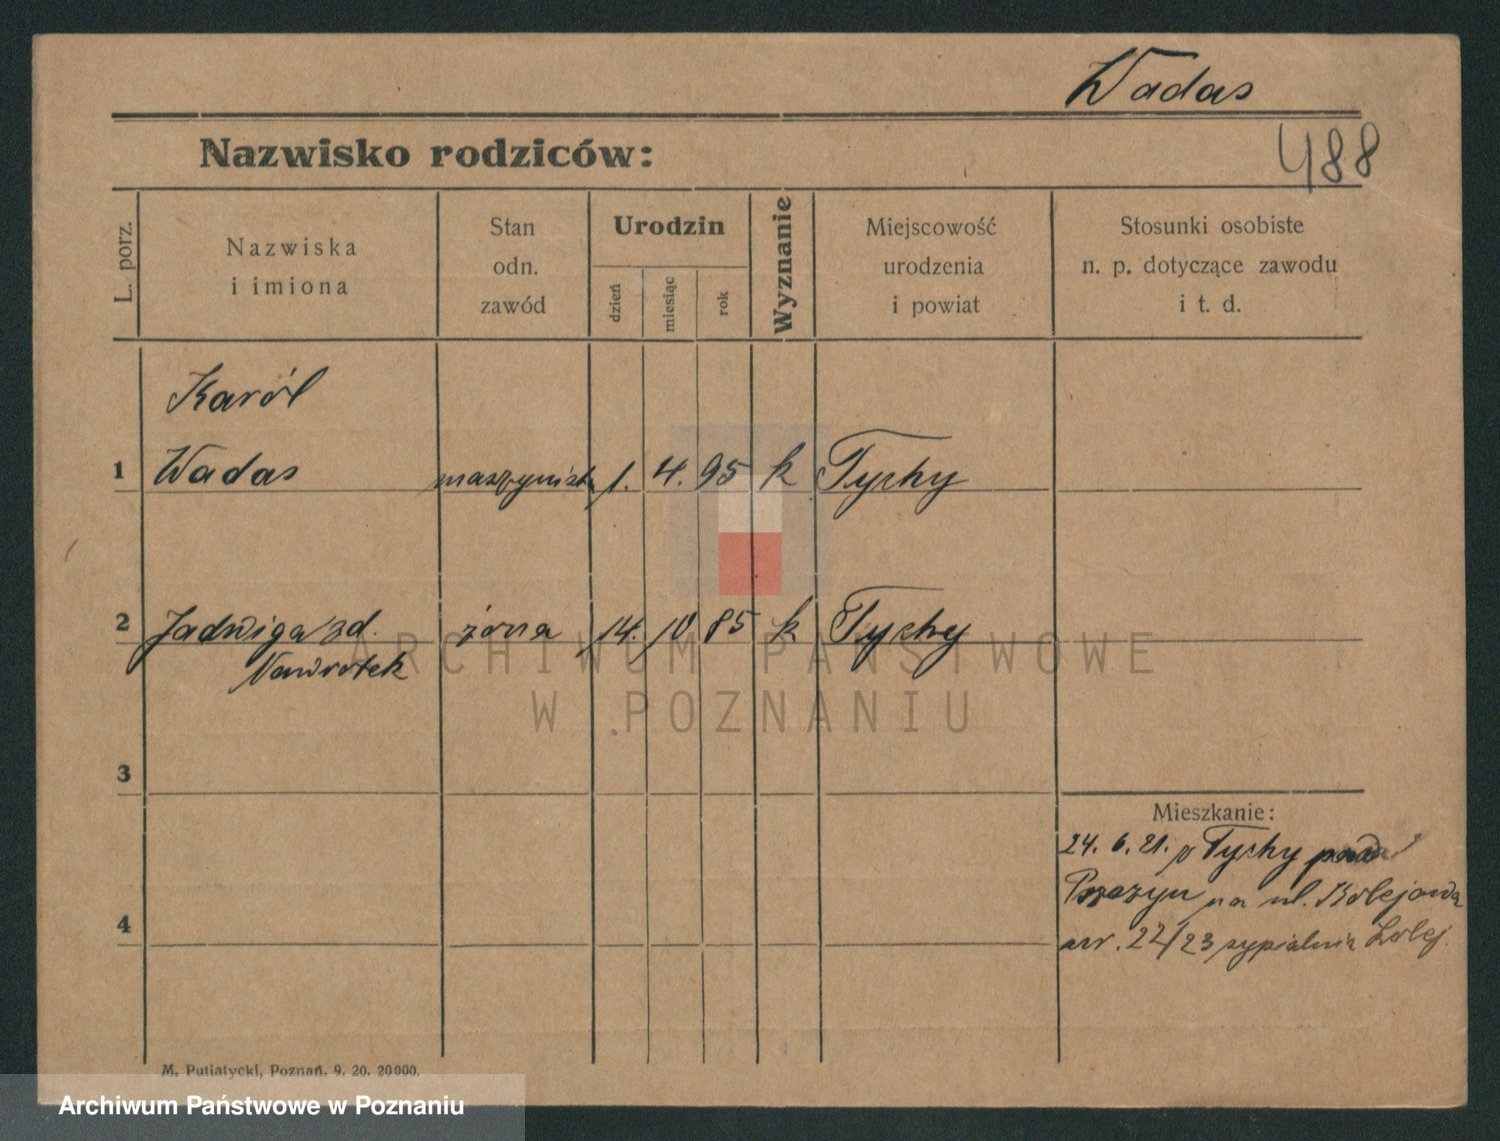 Wadas
Nazwisko rodziców:
488
L. porz.
Nazwiska
i imiona
Stan
odn.
zawód
Urodzin
dzień
miesiąc
rok
Wyznanie
Miejscowość
urodzenia
i powiat
Stosunki osobiste
n. p. dotyczące zawodu
i t. d.
Karól
1 Wadas maszynista 1. 4. 95 k Tychy
2 Jadwiga zd. żona 14. 10 85 k Tychy
Nawrotek
3
Mieszkanie:
24. 6. 21. p Tychy
Pszczyn na ul. Kolejowa
4
nr. 22/23 sypialnia kolej.
ARCHIWUM PAŃSTWOWE
W POZNANIU
M. Putiatycki, Poznań. 9. 20. 20000.
Archiwum Państwowe w Poznaniu